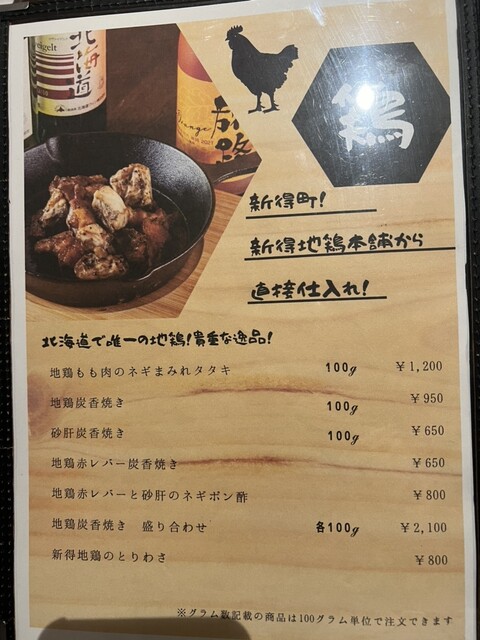 北海道
鶏
新得町!
新得地鶏本舗から
直接仕入れ!
北海道で唯一の地鶏!貴重な逸品!
地鶏もも肉のネギまみれタタキ 100g ¥1,200
地鶏炭香焼き 100g ¥950
砂肝炭香焼き 100g ¥650
地鶏赤レバー炭香焼き ¥650
地鶏赤レバーと砂肝のネギポン酢 ¥800
地鶏炭香焼き 盛り合わせ 各100g ¥2,100
新得地鶏のとりわさ ¥800
※グラム数記載の商品は100グラム単位で注文できます